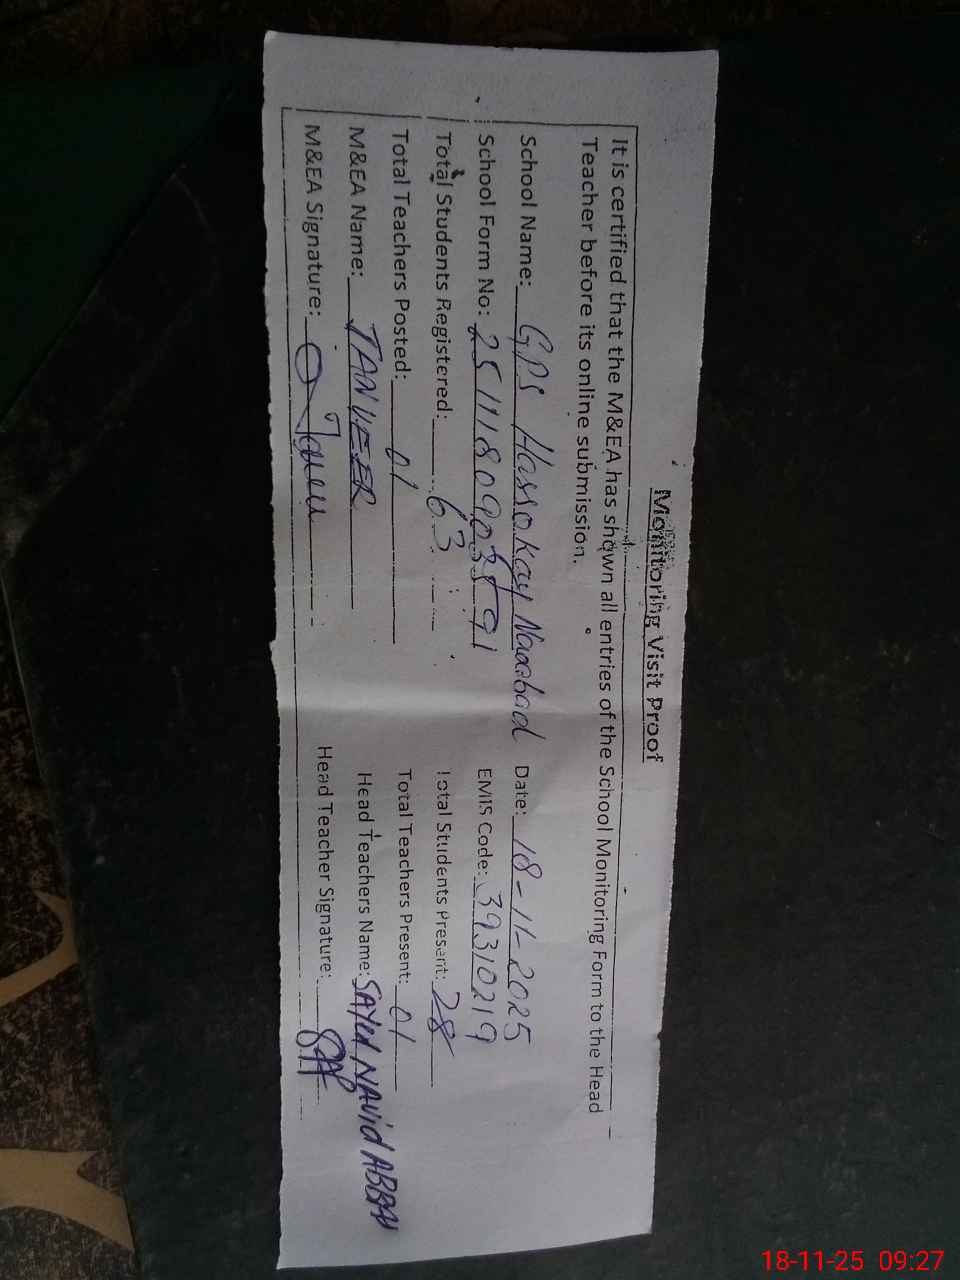 Monitoring Visit Proof
It is certified that the M&EA has shown all entries of the School Monitoring Form to the Head
Teacher before its online submission.
School Name: GPS Hassokay Nawabad Date: 18-11-2025
School Form No: EMIS Code: 39310219
Total Students Registered: 63 Total Students Present: 28
Total Teachers Posted: 01 Total Teachers Present: 01
M&EA Name: TANVEER Head Teachers Name: SAYED NAVID ABBAS
M&EA Signature: Head Teacher Signature:
18-11-25 09:27